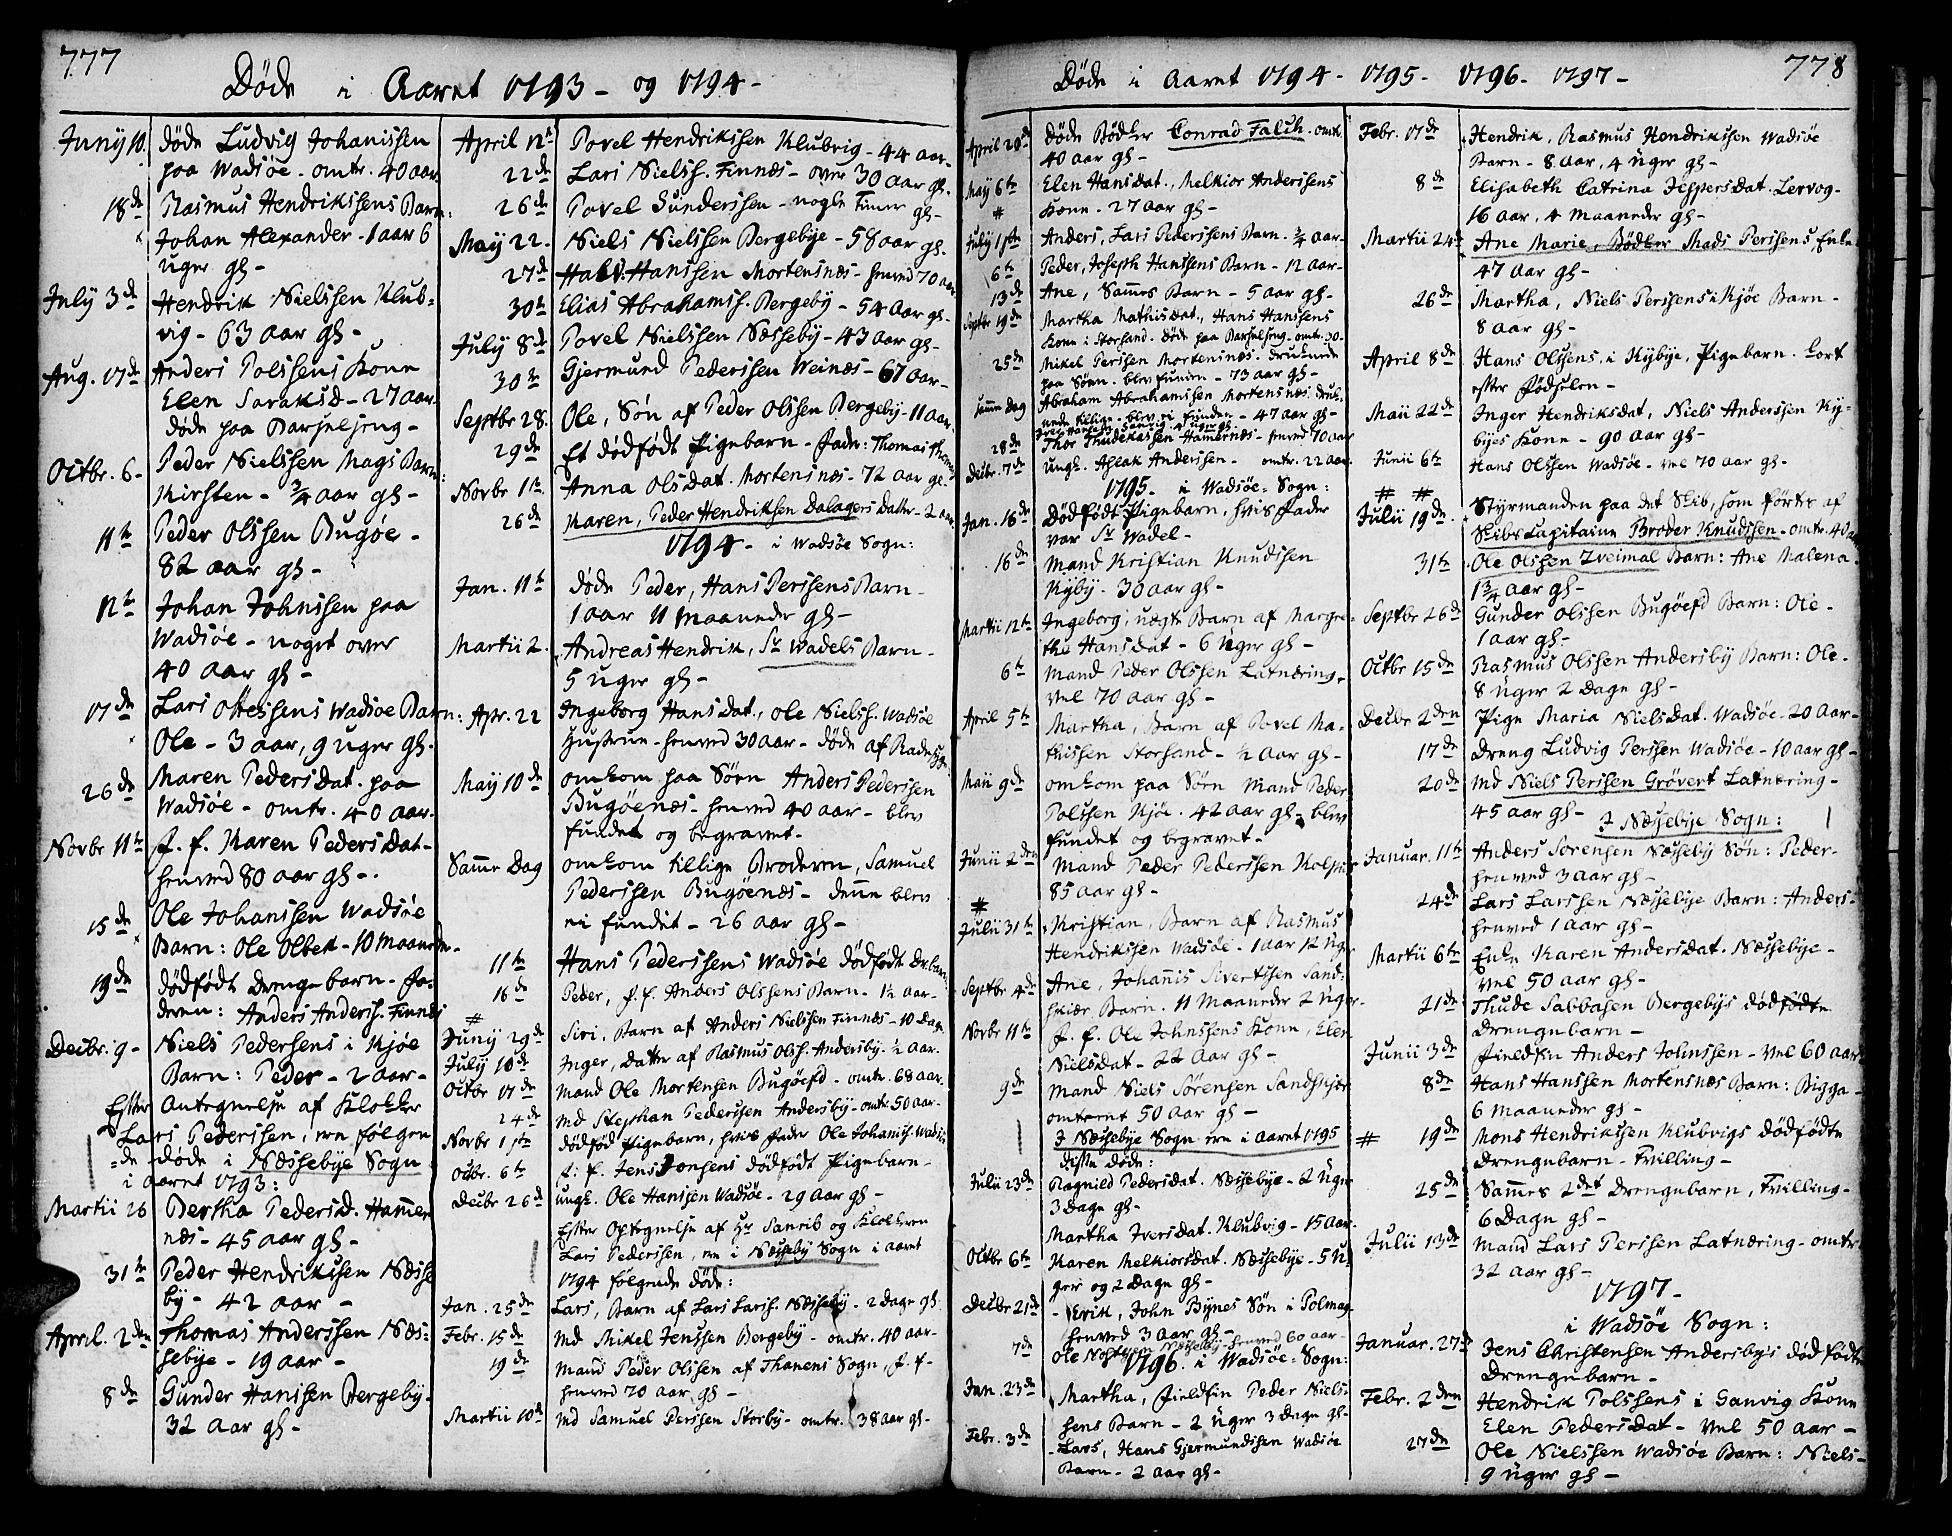 777
Døde i Aaret 1793 - og 1794 -
Juny 10. døde Ludvig Johanissen
paa Wadsøe - omtr. 40 aar.
18de Rasmus Hendrikssens Barn:
Johan Alexander - 1 aar 6
uger gl -
July 3de Hendrik Nielssen Klub-
vig - 63 aar gl -
Aug. 17de Anders Polssens Kone
Elen Saraksd - 27 aar.
døde paa Barselseng -
Octbr. 6 - Peder Nielssen Mags Barn:
Kirsten - 3/4 aar gl -
11te Peder Olssen Bugøe -
82 aar gl -
12te Johan Johnssen paa
Wadsøe - noget over
40 aar gl -
17de Lars Ottessens Wadsøe Barn:
Ole - 3 aar, 9 uger gl -
26de Maren PedersDat. paa
Wadsøe - omtr. 40 aar.
Novbr 11te f. f. Karen PedersDat -
henved 80 aar gl -
15de Ole Johanssen Wadsøe
Barn: Ole Olbek - 10 maaneder -
19de dødfødt Drengebarn - Fa-
deren: Anders Anderss. Finnes
Decbr. 9 - Niels Pedersens i Kjøe
Barn: Peder - 2 aar -
Efter Antegnelse af Klokker
Lars Pederssen, ere følgen
de døde i Næssebye Sogn
i Aaret 1793:
Martii 26 Bertha Pedersd. Hammer
nes - 45 aar gl -
31te Peder Hendrikssen Næsse
by - 42 aar -
April. 2den Thomas Anderssen Næs-
sebye - 19 aar -
8de Gunder Hanssen Bergeby -
32 aar gl -
April 12te Povel Hendrikssen Klubvig - 44 aar -
22de Lars Nielss. Finnes - over 30 aar gl -
26de Povel Sunderssen - nogle timer gl -
May 22. Niels Nielssen Bergebye - 58 aar gl -
27de Hanssen Mortensnæs - henved 70 aar
30te Elias Abrahamss. Bergeby - 54 aar gl -
July 8de Povel Nielssen Næsseby - 43 aar gl -
30te Gjermund Pederssen Weinæs - 67 aar -
Septbr 28. Ole, Søn af Peder Olssen Bergeby - 11 aar.
29de Et dødfødt Pigebarn - Fader: Thomas
Novbr 1ste Anna OlsDat. Mortensnæs - 72 aar gl -
26de Karen, Peder Hendriksen Dalagers Datter - 2 aar
1794 - i Wadsøe Sogn:
Jan. 11te døde Peder, Hans Perssens Barn -
1 aar 11 maaneder gl -
Martii 2. Andreas Hendrik, Sr Wadels Barn -
5 uger gl -
Apr. 22 Ingeborg HansDat., Ole Nielss. Wadsøe
Hustrue - henved 30 aar - døde af
May 10de omkom paa Søen Anders Pederssen
Bugøenæs - henved 40 aar - blev
fundet og begravet -
Samme Dag omkom tillige Broderen, Samuel
Pederssen Bugøenæs - denne blev
ei fundet - 26 aar gl -
11te Hans Pederssens Wadsøe dødfødt Dr.barn
16de Peder, f. f. Anders Olssens Barn - 1½ aar -
#
Juny 29de Siri, Barn af Anders Nielssen Finnes - 10 Dage
July 10de Inger, Datter af Rasmus Olss. Andersby - ½ aar.
Octbr 17de Mand Ole Mortensen Bugøefd - omtr. 68 aar.
24de Md Stephan Pederssen Andersby - omtr. 50 aar -
Novbr 1ste dødfød Pigebarn, hvis Fader Ole Johaniss. Wadsøe
Octbr. 6te f. f. Jens Jonsens dødfødt Pigebarn -
Decbr 26de ungk. Ole Hanssen Wadsøe - 29 aar gl -
Efter Optegnelse af Hr Sanrib og Klokkeren
Lars Pederssen, ere i Næsseby Sogn i aaret
1794 følgende døde:
Jan. 25de Lars, Barn af Lars Larss. Næsseby - 2 dage gl
Febr. 15de Md Mikel Jenssen Bergeby - omtr. 40 aar -
19de Mand Peder Olssen af Thanens Sogn, f. f -
henved 70 aar gl -
Martii 10de Md Samuel Perssen Storby - omtr. 38 aar gl -
778
Døde i Aaret 1794 - 1795 - 1796 - 1797 -
April 29de Døde Bødker Conrad Falch - omtr.
40 aar gl -
May 6te Elen HansDat., Melkior Anderssens
# Kone - 27 aar gl -
July 1ste Anders, Lars Pederssens Barn - ¾ aar -
6te Peder, Joseph Hanssens Barn - 12 aar -
13de Ane, Sammes Barn - 5 aar gl -
Septbr 19de Martha MathisDat., Hans Hanssens
Kone i Storsand - døde paa Barselseng - omtr. 30 -
25de Mikel Perssen Mortensnæs - druknede
paa Søen - blev funden - 73 aar gl -
samme Dag Abraham Abrahamssen Mortensnæs druk-
nede tillig - blev ei funden - 47 aar gl -
28de Thor Thudekassen Hamernæs - henved 70 aar
Decbr. 7de ungk. Aslak Anderssen - omtr. 22 aar.
1795 - i Wadsøe-Sogn:
Jan. 16de Dødfødt Pigebarn, hvis Fader
var Sr Wadel -
16de Mand Kristian Knudssen
Kyby - 30 aar gl -
Martii 12te Ingeborg, uægte Barn af Margre-
the HansDat - 6 uger gl -
6te Mand Peder Olssen Latnæring -
vel 70 aar gl -
April 5te Martha, Barn af Povel Ma-
thissen Storsand - ½ aar gl -
Maii 9de omkom paa Søen Mand Peder
Polssen Kjøe - 42 aar gl - blev
fundet og begravet -
Junii 2den Mand Peder Pederssen
85 aar gl -
#
Julii 31te Kristian, Barn af Rasmus
Hendrikssen Wadsøe - 1 aar 12 uger
Septbr 4de Ane, Johannis Sivertsen Sand-
skiær Barn - 11 Maaneder 2 uger -
Novbr 11te f. f. Ole Johnssens Kone, Elen
NielsDat - 22 aar gl -
9de Mand Niels Sørensen Sandskjær
omtrent 50 aar gl -
I Næssebye Sogn ere i Aaret 1795
disse døde:
Julii 23de Ragnild PedersDat. Næssebye - 2 uger
3 dage gl -
Martha IversDat. Klubvig - 15 aar.
Octbr 6te Karen MelkiorsDat. Næssebye - 5 u-
ger og 2 Dage gl -
Decbr 21de - Erik, John Bynes Søn i Polmag -
henved 3 aar gl -
7de Ole Næsseby henved 60 aar -
1796 - i Wadsøe-Sogn:
Jan. 23de Martha, Fieldfin Peder Niels-
sens Barn - 2 uger 3 dage gl -
Febr. 3de - Lars, Hans Gjermundssen Wadsøe
Barn - 2 aar gl -
Febr. 17de Hendrik, Rasmus Hendrikssen Wadsøe
Barn - 8 aar, 4 uger gl -
8de Elisabeth Catrina JeppersDat. Lervog -
16 aar, 4 maaneder gl -
Martii 24de Ane Marie, Bødker Mads Perssens Enke
47 aar gl -
26de Martha, Niels Perssens i Kjøe Barn -
8 aar gl -
April 8de Hans Olssens, i Kybye, Pigebarn - kort
efter fødselen -
Maii 22de Inger HendriksDat, Niels Anderssen Ky-
byes Kone - 90 aar gl -
Junii 6te Hans Olssen Wadsøe - vel 70 aar gl -
# #
Julii 19de Styrmanden paa det Skib, som førtes af
Skibscapitaine Broder Knudssen - omtr. 40 aar
31te Ole Olssen Tveimal Barn: Ane Malena.
1¾ aar gl -
Septbr 26de Gunder Olssen Bugøefd Barn: Ole -
1 aar gl -
Octbr 15de Rasmus Olssen Andersby Barn: Ole -
8 uger 2 Dage gl -
Decbr 2den Pige Maria NielsDat. Wadsøe - 20 aar -
17de Dreng Ludvig Perssen Wadsøe - 10 aar gl -
20de Md Niels Perssen Grøvert Latnæring -
45 aar gl -
I Næssebye Sogn:
Januar. 11te Anders Sørensen Næsseby Søn: Peder -
henved 3 aar gl -
24de Lars Larssen Næssebye Barn: Anders -
henved 1 aar gl -
Martii 6te Enke Karen AndersDat. Næssebye -
vel 50 aar gl -
21de Thude Sabbasen Bergebys dødfødte
Drengebarn -
Junii 3de Fieldfin Anders Johnssen - vel 60 aar
8de Hans Hanssen Mortensnæs Barn: Bigga -
6 maaneder gl -
# 19de Mons Hendrikssen Klubvigs dødfødte
Drengebarn - Tvilling -
25de Sammes 2det Drengebarn, Tvilling -
6 Dage gl -
Julii 13de Mand Lars Perssen Latnæring - omtr.
32 aar gl -
1797 -
i Wadsøe Sogn:
Januar. 27de Jens Christensen Andersbys dødfødte
Drengebarn -
Febr. 2den Hendrik Polssens i Ganvig Kone
Elen PedersDat - vel 50 aar -
27de Ole Nielssen Wadsøe Barn: Niels -
9 uger gl -